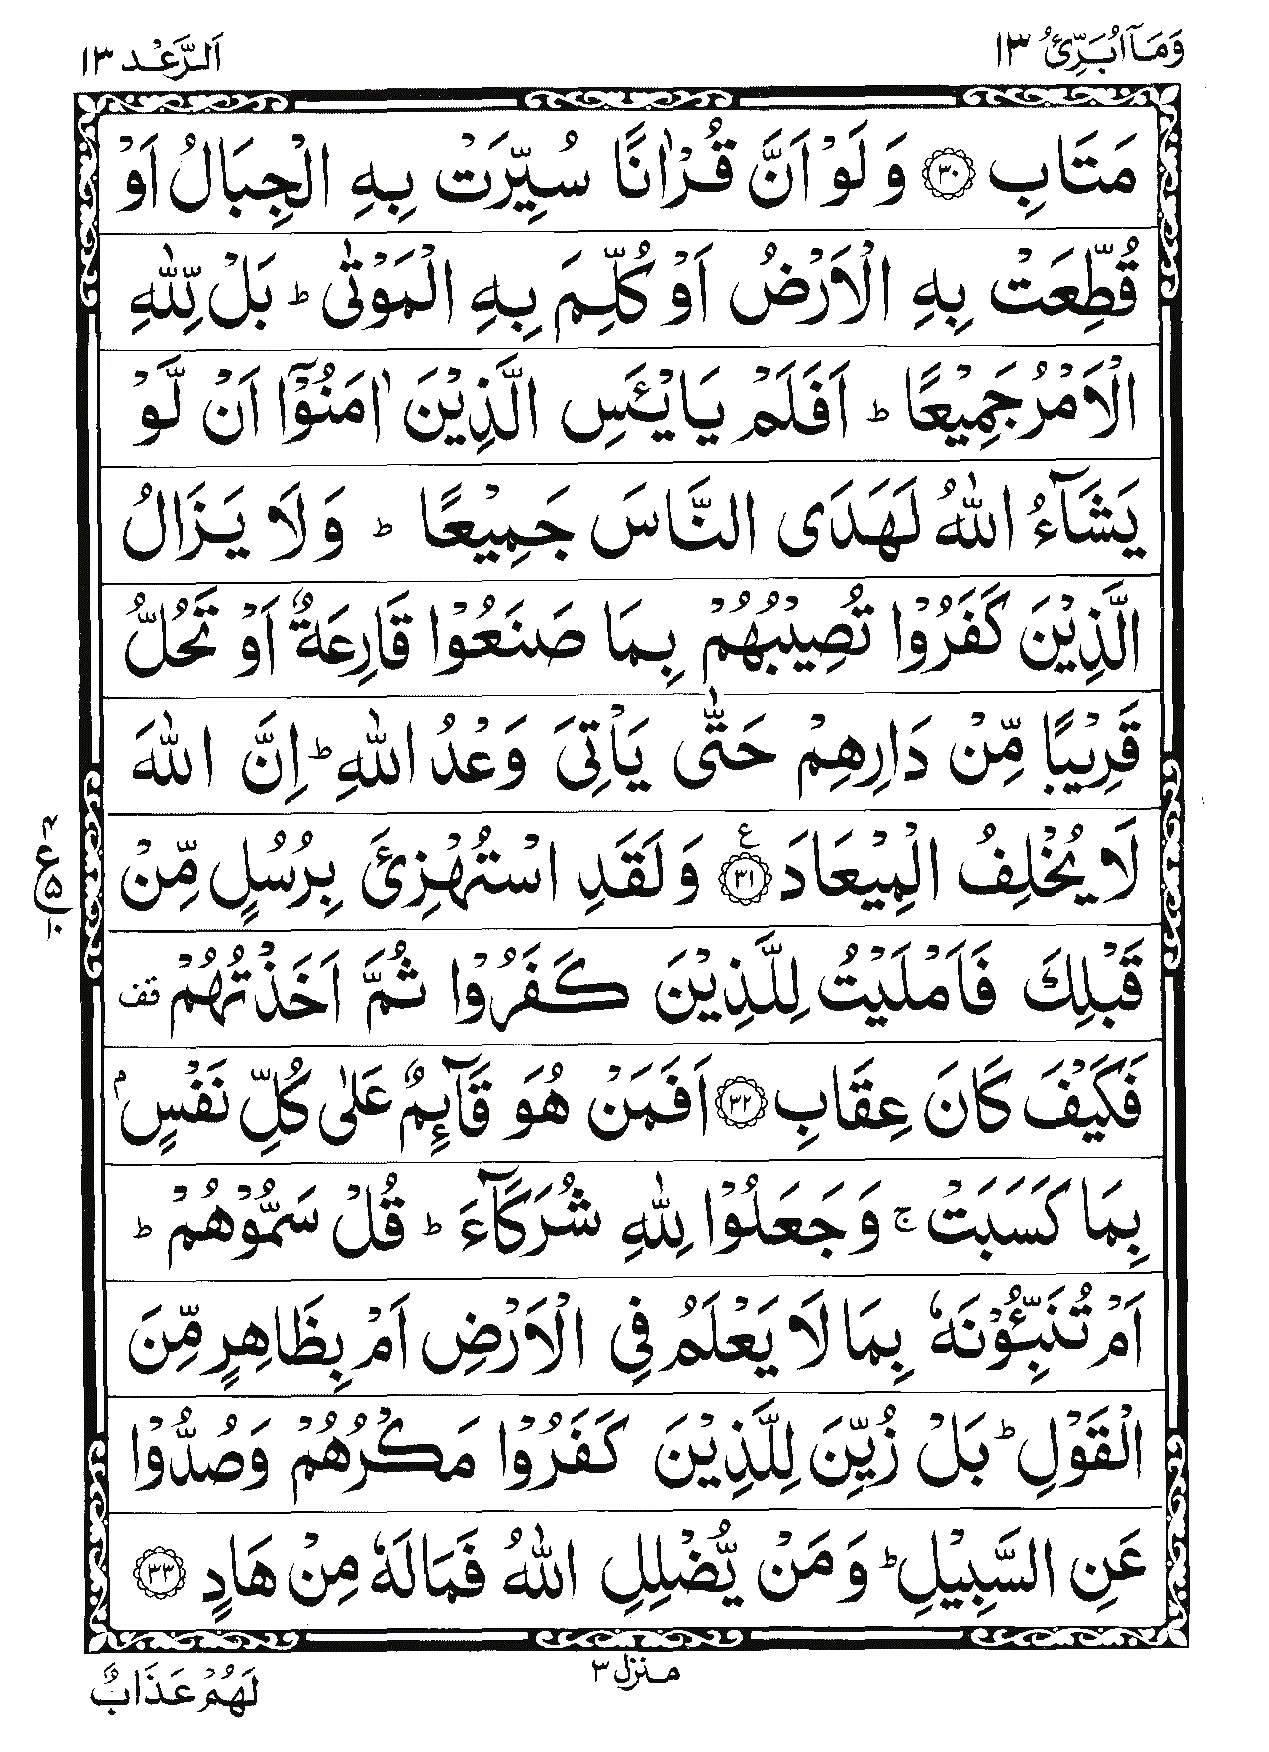 وَمَآ اُبَرِّئُ ١٣
اَلرَّعْد ١٣
مَتَابِ ﴿٣٠﴾ وَ لَوْ اَنَّ قُرْاٰنًا سُيِّرَتْ بِهِ الْجِبَالُ اَوْ
قُطِّعَتْ بِهِ الْاَرْضُ اَوْ كُلِّمَ بِهِ الْمَوْتٰى ؕ بَلْ لِّلّٰهِ
الْاَمْرُ جَمِيْعًا ؕ اَفَلَمْ يَايْئَسِ الَّذِيْنَ اٰمَنُوْٓا اَنْ لَّوْ
يَشَآءُ اللّٰهُ لَهَدَى النَّاسَ جَمِيْعًا ؕ وَ لَا يَزَالُ
الَّذِيْنَ كَفَرُوْا تُصِيْبُهُمْ بِمَا صَنَعُوْا قَارِعَةٌ اَوْ تَحُلُّ
قَرِيْبًا مِّنْ دَارِهِمْ حَتّٰى يَاْتِىَ وَعْدُ اللّٰهِ ؕ اِنَّ اللّٰهَ
لَا يُخْلِفُ الْمِيْعَادَ ﴿٣١﴾ ع وَ لَقَدِ اسْتُهْزِئَ بِرُسُلٍ مِّنْ
٤ ع ٥ ١٠
قَبْلِكَ فَاَمْلَيْتُ لِلَّذِيْنَ كَفَرُوْا ثُمَّ اَخَذْتُهُمْ قف
فَكَيْفَ كَانَ عِقَابِ ﴿٣٢﴾ اَفَمَنْ هُوَ قَآئِمٌ عَلٰى كُلِّ نَفْسٍۭ
بِمَا كَسَبَتْ ۚ وَ جَعَلُوْا لِلّٰهِ شُرَكَآءَ ؕ قُلْ سَمُّوْهُمْ ؕ
اَمْ تُنَبِّـُٔوْنَهٗ بِمَا لَا يَعْلَمُ فِى الْاَرْضِ اَمْ بِظَاهِرٍ مِّنَ
الْقَوْلِ ؕ بَلْ زُيِّنَ لِلَّذِيْنَ كَفَرُوْا مَكْرُهُمْ وَ صُدُّوْا
عَنِ السَّبِيْلِ ؕ وَ مَنْ يُّضْلِلِ اللّٰهُ فَمَا لَهٗ مِنْ هَادٍ ﴿٣٣﴾
منزل ٣
لَهُمْ عَذَابٌ